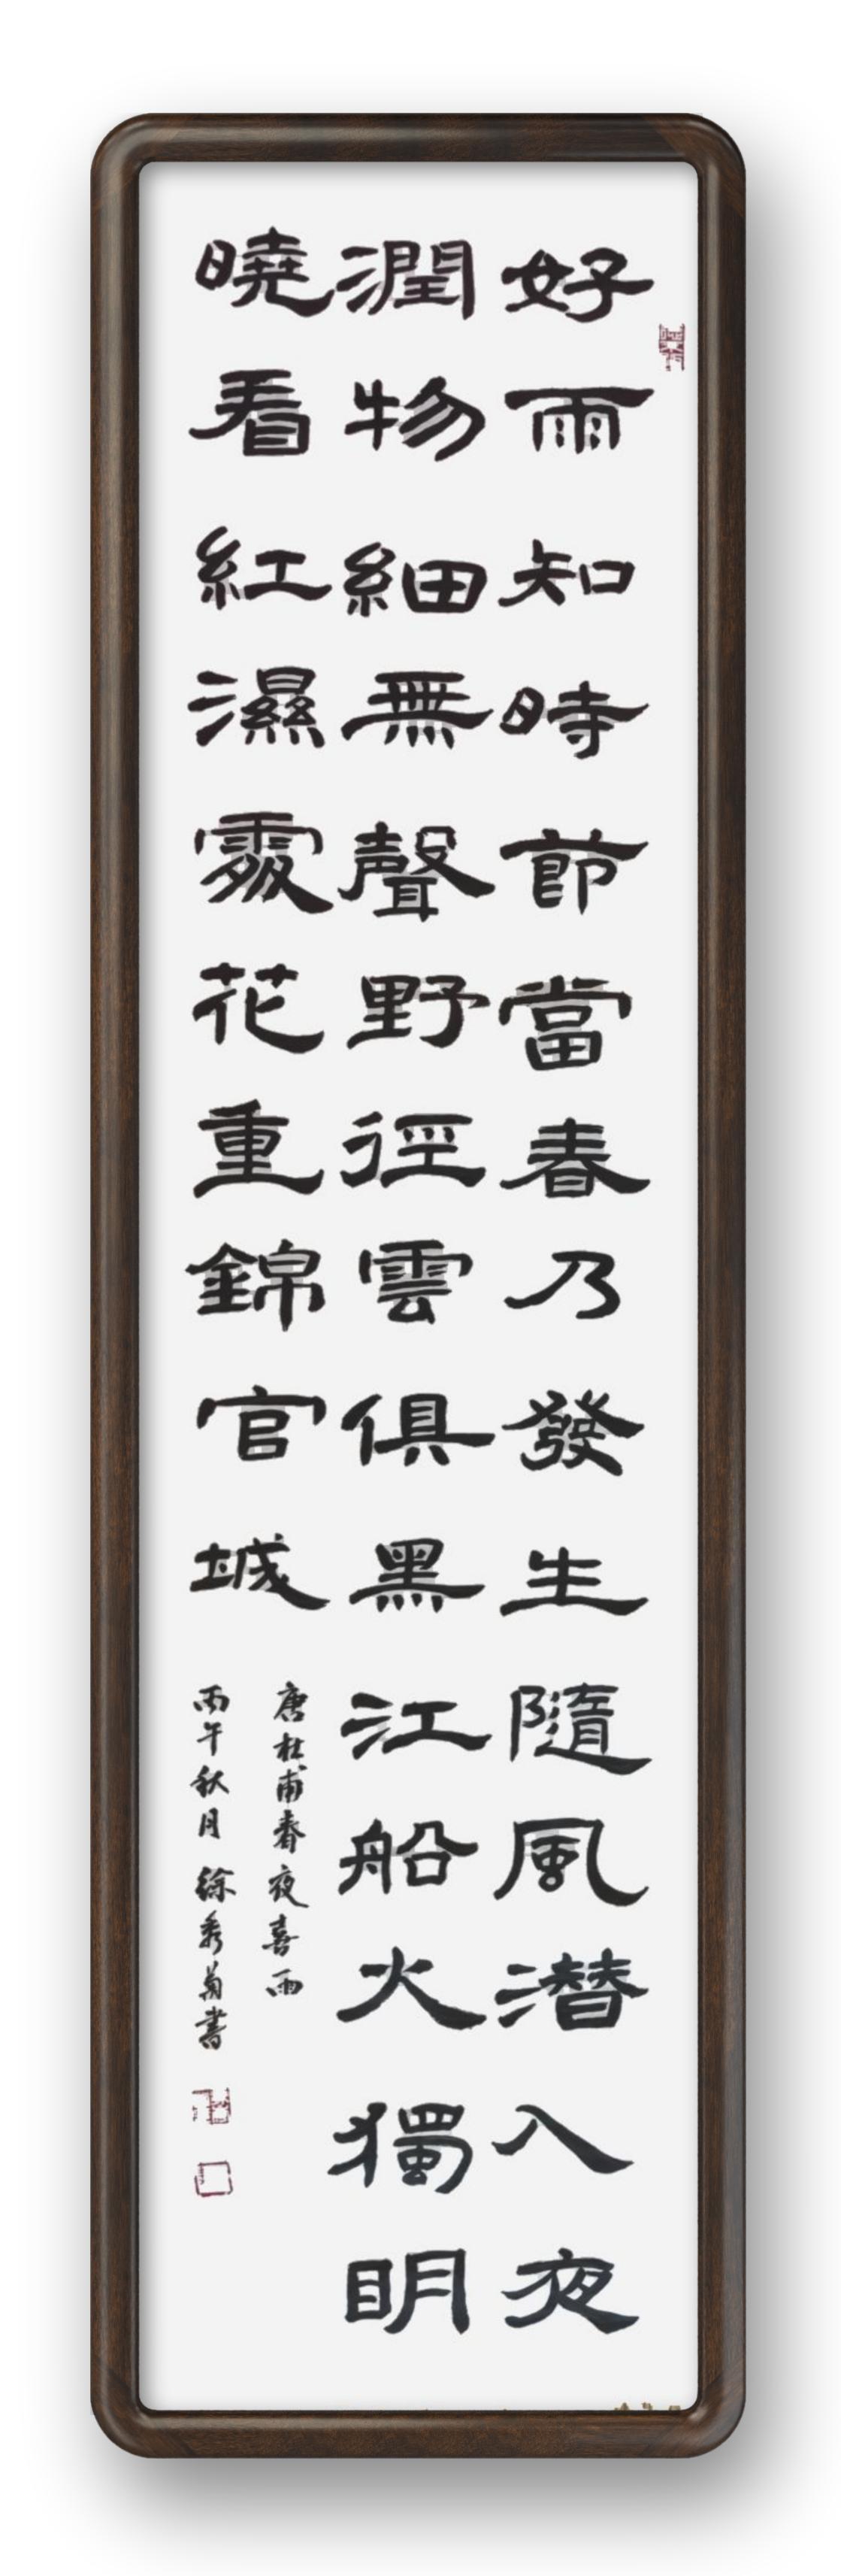 好雨知時節當春乃發生隨風潛入夜
潤物細無聲野徑雲俱黑江船火獨明
曉看紅濕處花重錦官城
唐杜甫春夜喜雨
丙午秋月徐秀菊書